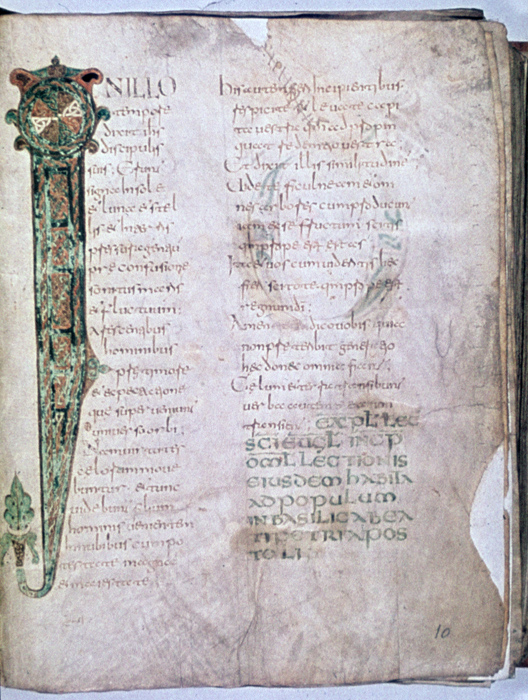 NILLO
tempore
dixit ihs
discipulis
suis. Erunt
signa in sole
et luna et stel
lis et in terris
pressura gentiu
pre confusione
sonitus maris
et fluctuum
arescentibus
hominibus
pre timore
et expectatione
que superuenient
uniuerso orbi
uirtutes
celorum moue
buntur et tunc
uidebunt filium
hominis uenientem
in nubibus cum po
testate magna
et maiestate
His autem fieri incipientibus
respicite et leuate capi
ta uestra
quat redemptio uestra
Et dixit illis similitudine
Videte ficulneam et om
nes arbores cum producun
iam ex se fructum scitis
prope est estas
Ita et uos cum uideritis hec
fieri scitote prope est
regnum di
Amen dico uobis quia
non preteribit generatio
hec donec omnia fiant
Celum et terra transibunt
uer
transient EXPL LEC
SCI EUGL INCP
OML LECTIONIS
EIUSDEM HABITA
AD POPULUM
IN BASILICA BEA
TI PETRI APOS
TOLI
10